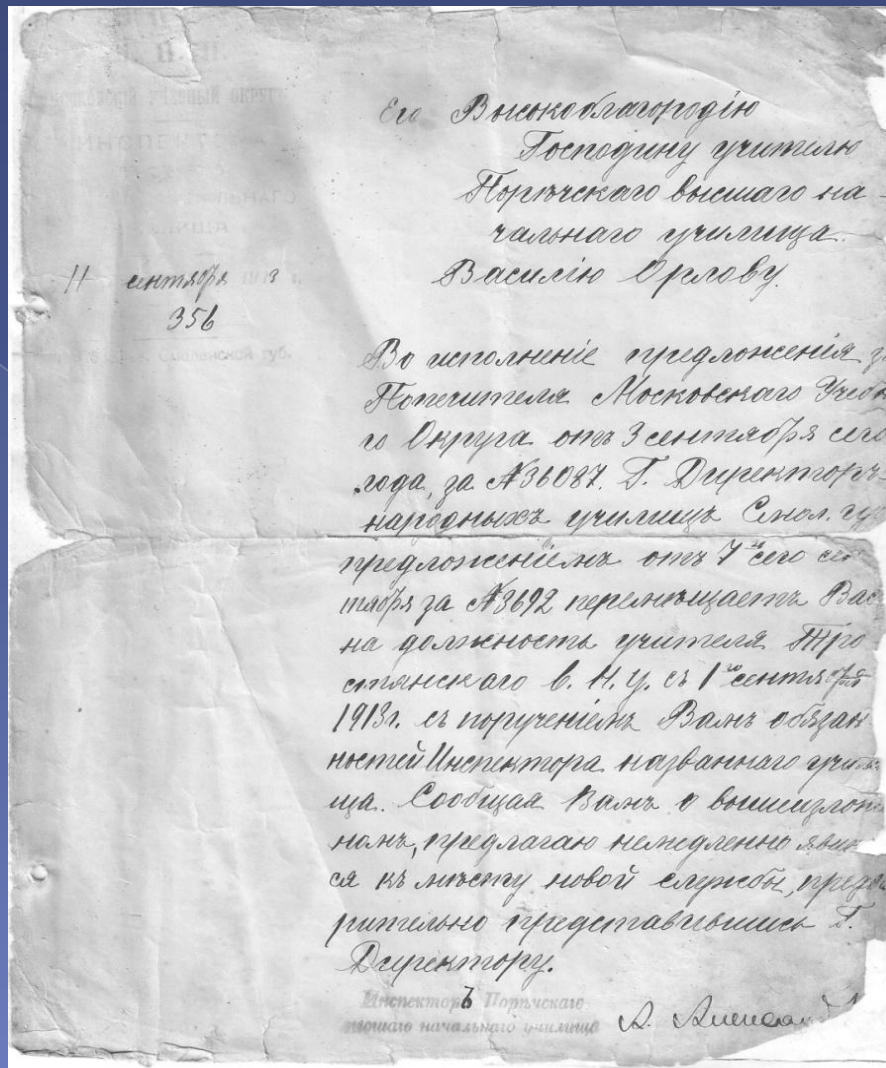 М. Н. П.
Московскій учебный округъ
ИНСПЕКТОРЪ
11 сентября 1913 г.
356
Смоленской губ.
Его Высокоблагородію
Господину учителю
Порѣчскаго высшаго на-
чальнаго училища
Василію Орлову.
Во исполненіе предложенія г.
Попечителя Московскаго Учебна
го Округа отъ 3 сентября сего
года, за №36087. Г. Директоръ
народныхъ училищъ Смол. губ
предложеніемъ отъ 7го сего сен
тября за №3692 перемѣщаетъ Вас
на должность учителя Тро
стянскаго в. н. у. съ 1го сентября
1913г. съ порученіемъ Вамъ обязан
ностей Инспектора названнаго учили
ща. Сообщая Вамъ о вышеизложен
номъ, предлагаю немедленно явить
ся къ мѣсту новой службы, предва
рительно представившись Г.
Директору.
Инспекторъ Порѣчскаго
высшаго начальнаго училища А. Александ